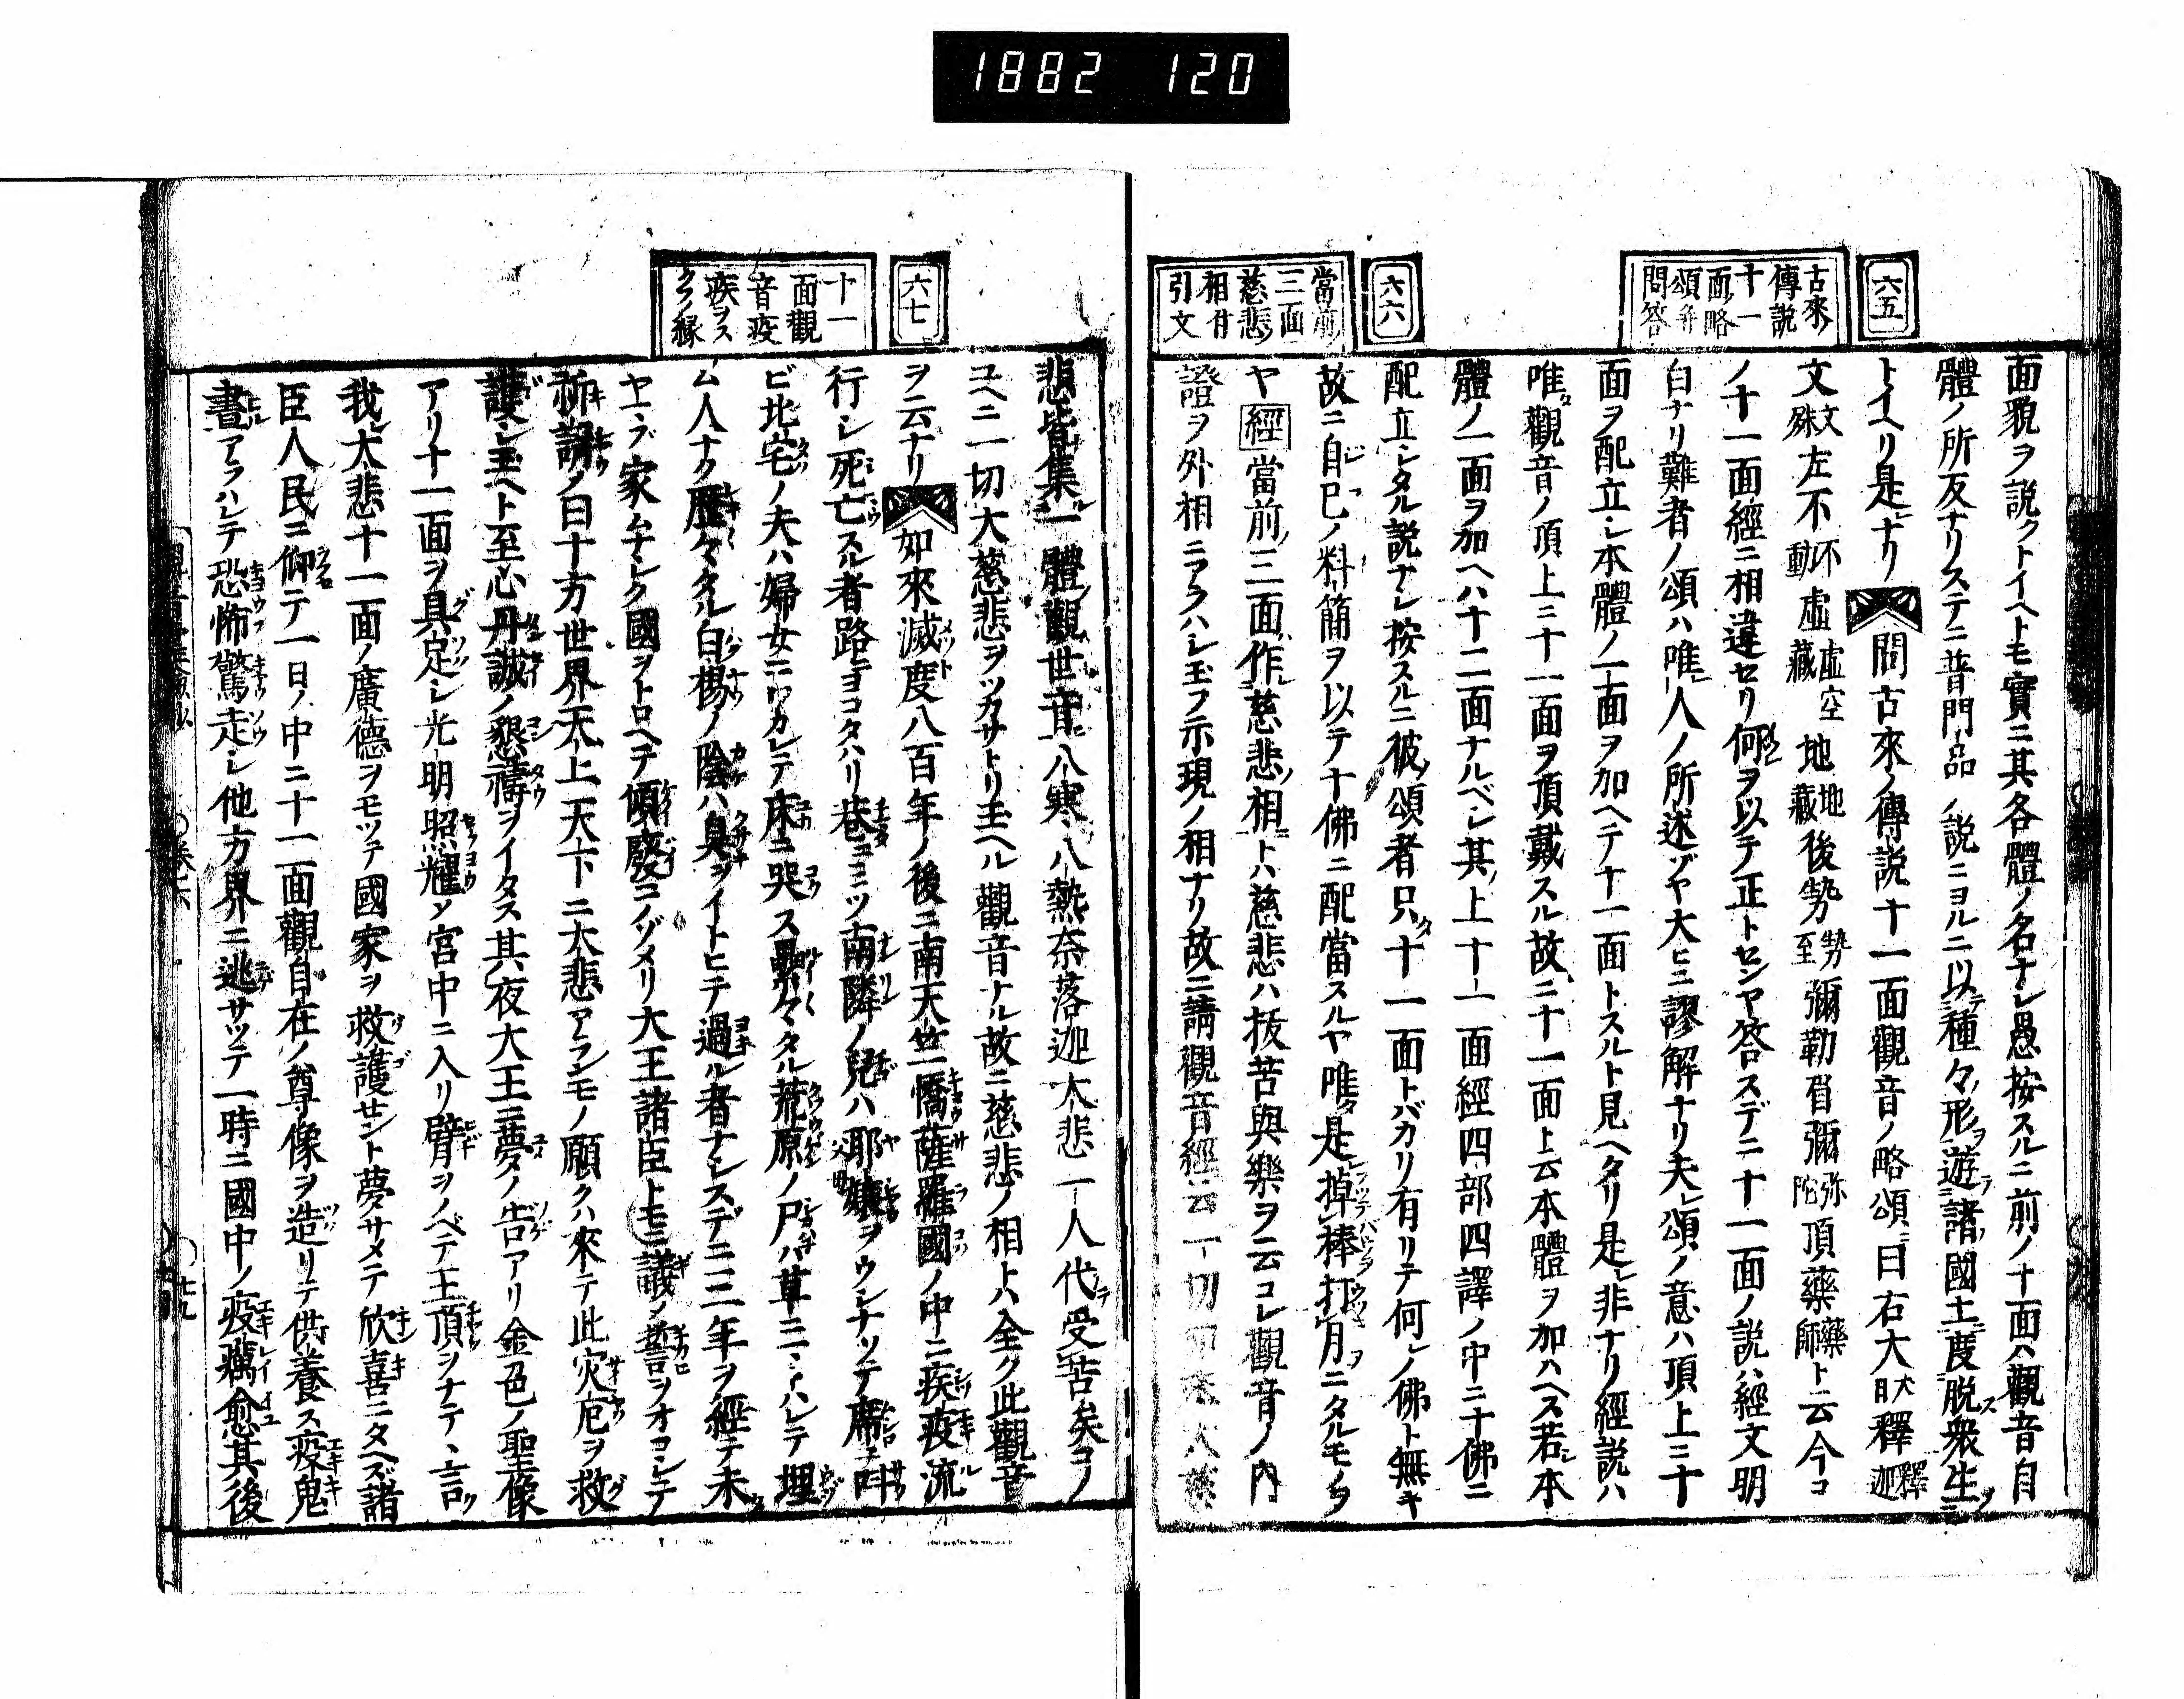 1882 120
六五
古來ノ
傳説
十一
面ノ略
頌并
問答
面貌ヲ説クトイヘトモ實ニ其各體ノ名ナシ愚按スルニ前ノ十面ハ觀音自
體ノ所反ナリステニ普門品ノ説ニヨルニ以種々形遊諸國土度脱衆生
トイヘリ是ナリ 問古來ノ傳説十一面觀音ノ略頌曰右大大日釋釋迦
文文殊左不不動虛虛空藏地地藏後勢勢至彌勒眉彌弥陀頂藥藥師ト云今コ
ノ十一面經ニ相違セリ何ヲ以テ正トセンヤ答スデニ十一面ノ説ハ經文明
白ナリ難者ノ頌ハ唯人ノ所述ゾヤ大ヒニ謬解ナリ夫頌ノ意ハ頂上ニ十
面ヲ配立シ本體ノ一面ヲ加ヘテ十一面トスルト見ヘタリ是レ非ナリ經説ハ
唯觀音ノ頂上ニ十一面ヲ頂戴スル故ニ十一面ト云本體ヲ加ハヘス若シ本
體ノ一面ヲ加ヘハ十二面ナルベシ其上十一面經四部四譯ノ中ニ十佛ニ
配立シタル説ナシ按スルニ彼ノ頌者只十一面トバカリ有リテ何レノ佛ト無キ
故ニ自己ノ料簡ヲ以テ十佛ニ配當スルヤ唯是掉棒打月ニタルモノ
ヤ經當前三面作慈悲相トハ慈悲ハ抜苦與樂ヲ云コレ觀音ノ内
證ヲ外相ニアラハレ玉フ示現ノ相ナリ故ニ請觀音經云一切
六六
當前
三面
慈悲
相并
引文
悲皆集一體觀世音八寒八熱奈落迦大悲一人代受苦矣コノ
ユヘニ一切大慈悲ヲツカサトリ玉ヘル觀音ナル故ニ慈悲ノ相トハ全ク此觀音
ヲ云ナリ 如來滅度八百年ノ後ニ南天竺憍薩羅國ノ中ニ疾疫流
行シ死亡スル者路ニヨコタハリ巷ニミツ南隣ノ兒ハ耶孃ヲウシナツテ席ニ叫
ビ北宅ノ夫ハ婦女ニワカレテ床ニ哭ス纍々タル荒原ノ尸ハ草ニマトハレテ埋
ム人ナク歴々タル白楊ノ陰ハ臭ヲイトヒテ過ル者ナシスデニ三年ヲ經テ未
ヤマズ家ムナシク國ヲトロヘテ傾廢コノゾメリ大王諸臣トモニ議ノ誓ヲオコシテ
祈謝ノ曰十方世界天上天下ニ大悲アランモノ願クハ來テ此灾厄ヲ救
護シ玉ヘト至心丹誠ノ懇禱ヲイタス其夜大王ニ夢ノ告アリ金色ノ聖像
アリ十一面ヲ具足シ光明照耀ソ宮中ニ入リ臂ヲノベテ王頂ヲナテヽ言ク
我レ大悲十一面ノ廣德ヲモツテ國家ヲ救護セント夢サメテ欣喜ニタヘズ諸
臣人民ニ仰テ一日ノ中ニ十一面觀自在ノ尊像ヲ造リテ供養ス疫鬼
晝アラハレテ恐怖驚走シ他方界ニ逃サツテ一時ニ國中ノ疫癘愈其後
六七
十一
面觀
音疫
疾ヲス
クフノ縁